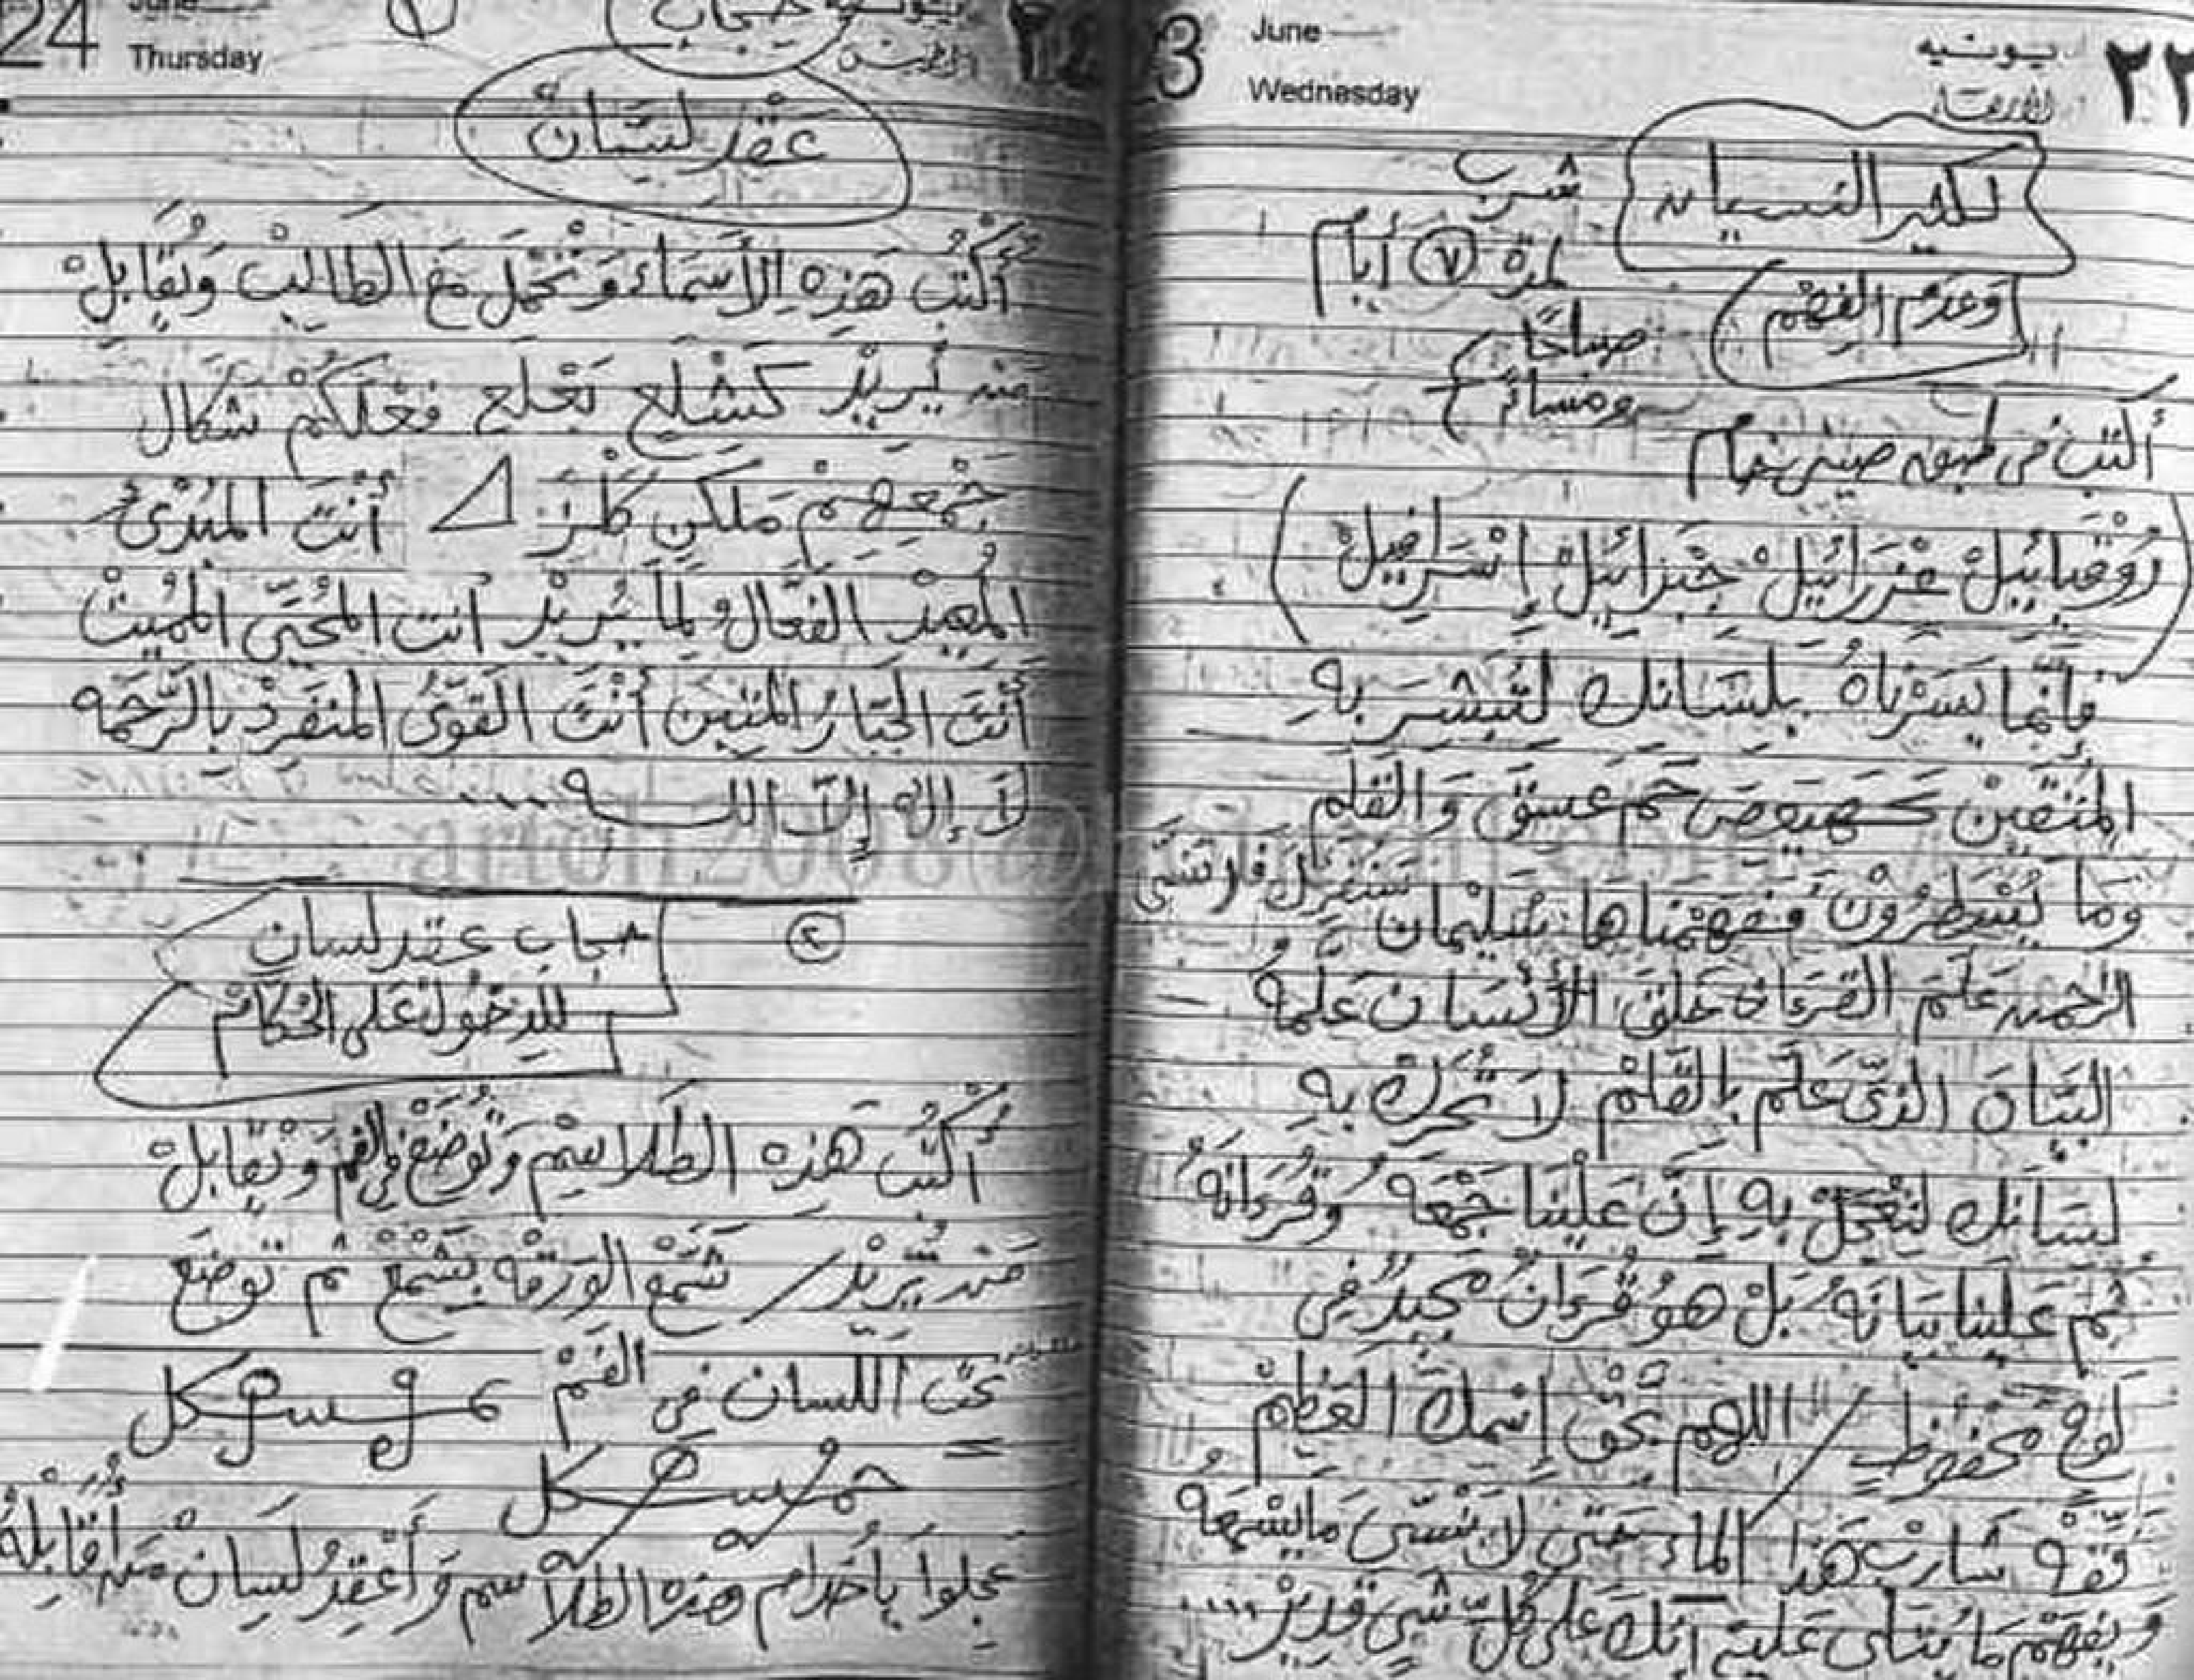 June
Wednesday
يونيه
الأربعاء
٢٣
3
لكثير النسيان
وَعدم الفهم
شرب
لمدة ٧ أيام
صباحًا
ومساءً
أكتب فى طبق صينى خام
رُوْقيائِيلْ عزرائيلْ جبرائيلْ إسْرَافِيلْ
فإنّما يَسّرْناهُ بلسَانك لتُبشرَ به
المتّقينْ كهيعص حم عسق وَالقلم
وما يَسْطرُوْن ففهّمناها سُليْمان سنقرئك فلا تنسَى
الرّحمن عَلّمَ القرءان خلقَ الأنسَان عَلّمهُ
البَيانَ الذّى عَلّم بالقَلمْ لاَ تُحرّكْ بهِ
لسَانك لتعْجلَ بهِ إنّ عَليْنا جَمْعَه وقُرءانهُ
ثم عَلينا بيَانهُ بَلْ هوُ قُرءانٌ مّجيدٌ فى
لَوْح مَّحْفوظٍ / اللهم بحَقّ إسْمكَ العَظيْمْ
فقهْ شَاربْ هذا الماء حَتى لاَ ينْسَى مَا يسْمعَهُ
وَيفهَمْ مَا يتلى عَليْه إنّكَ عَلى كُلّ شَىٍ قديرْ
24
June
Thursday
يونيه
الخميس
٢٤
١
حجاب
عقد لسَان
أكْتُبْ هَذِهِ الأَسْمَاء وَتحْمَلَ مَعَ الطَالبْ وَيُقابلْ
من يُريْد كشْلَع يَعْلج فعْلكمْ شكال
أنتَ المُبْدئُ
المُعيْد الفعّالُ لمَا يُريْد أنت المُحْيّى المُميْت
أنْتَ الجبّارُ المَتيْن أنْتَ القوّىُ المنفَردْ بالرّحَمه
لاَ إله إلاّ الله
٢
حجاب عقد لسان
للدخُول عَلى الحُكّامْ
أكْتُبْ هَذِه الطَلاسِمْ وَتُوْضعْ فى الفمْ وَتقابلْ
مَن تُريْد / تشمّعْ الوَرقهْ بشمْعْ ثم توضعَ
تحت اللسان فى الفَمْ
عجلوا ياخُدام هذه الطلاسم وَأعْقدُ لسَان من أُقابلهُ